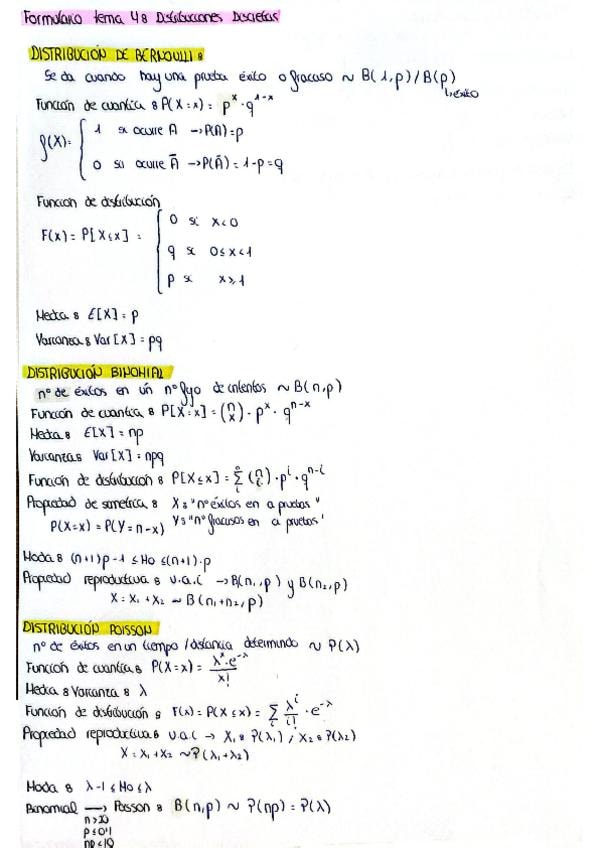 Formulario tema 4: Distribuciones Discretas
DISTRIBUCIÓN DE BERNOULLI:
Se da cuando hay una prueba éxito o fracaso ~ B(1,p)/B(p)
↳éxito
Función de cuantía: P(X=x) = p^x · q^(1-x)
f(X)= { 1 si ocurre A → P(A)=p
0 si ocurre Ā → P(Ā) = 1-p=q
Función de distribución
F(x) = P[X≤x] = { 0 si x<0
q si 0≤x<1
p si x≥1
Media: E[X] = p
Varianza: Var[X] = pq
DISTRIBUCIÓN BINOMIAL
nº de éxitos en un nº fijo de intentos ~ B(n,p)
Función de cuantía: P[X=x] = (n x) · p^x · q^(n-x)
Media: E[X] = np
Varianza: Var[X] = npq
Función de distribución: P[X≤x] = Σ (n i) · p^i · q^(n-i)
Propiedad de simetría: X = "nº éxitos en n pruebas"
P(X=x) = P(Y=n-x) Y= "nº fracasos en n pruebas"
Moda: (n+1)p-1 ≤ Mo ≤ (n+1)·p
Propiedad reproductiva: v.a.i → B(n₁,p) y B(n₂,p)
X = X₁ + X₂ ~ B(n₁+n₂,p)
DISTRIBUCIÓN POISSON
nº de éxitos en un tiempo/distancia determinado ~ P(λ)
Función de cuantía: P(X=x) = λ^x·e^-λ / x!
Media = Varianza = λ
Función de distribución: F(x) = P(X≤x) = Σ λ^i / i! · e^-λ
Propiedad reproductiva: v.a.i → X₁ = P(λ₁), X₂ = P(λ₂)
X = X₁ + X₂ ~ P(λ₁+λ₂)
Moda: λ-1 ≤ Mo ≤ λ
Binomial → Poisson: B(n,p) ~ P(np) = P(λ)
p≤0'1
np≤10